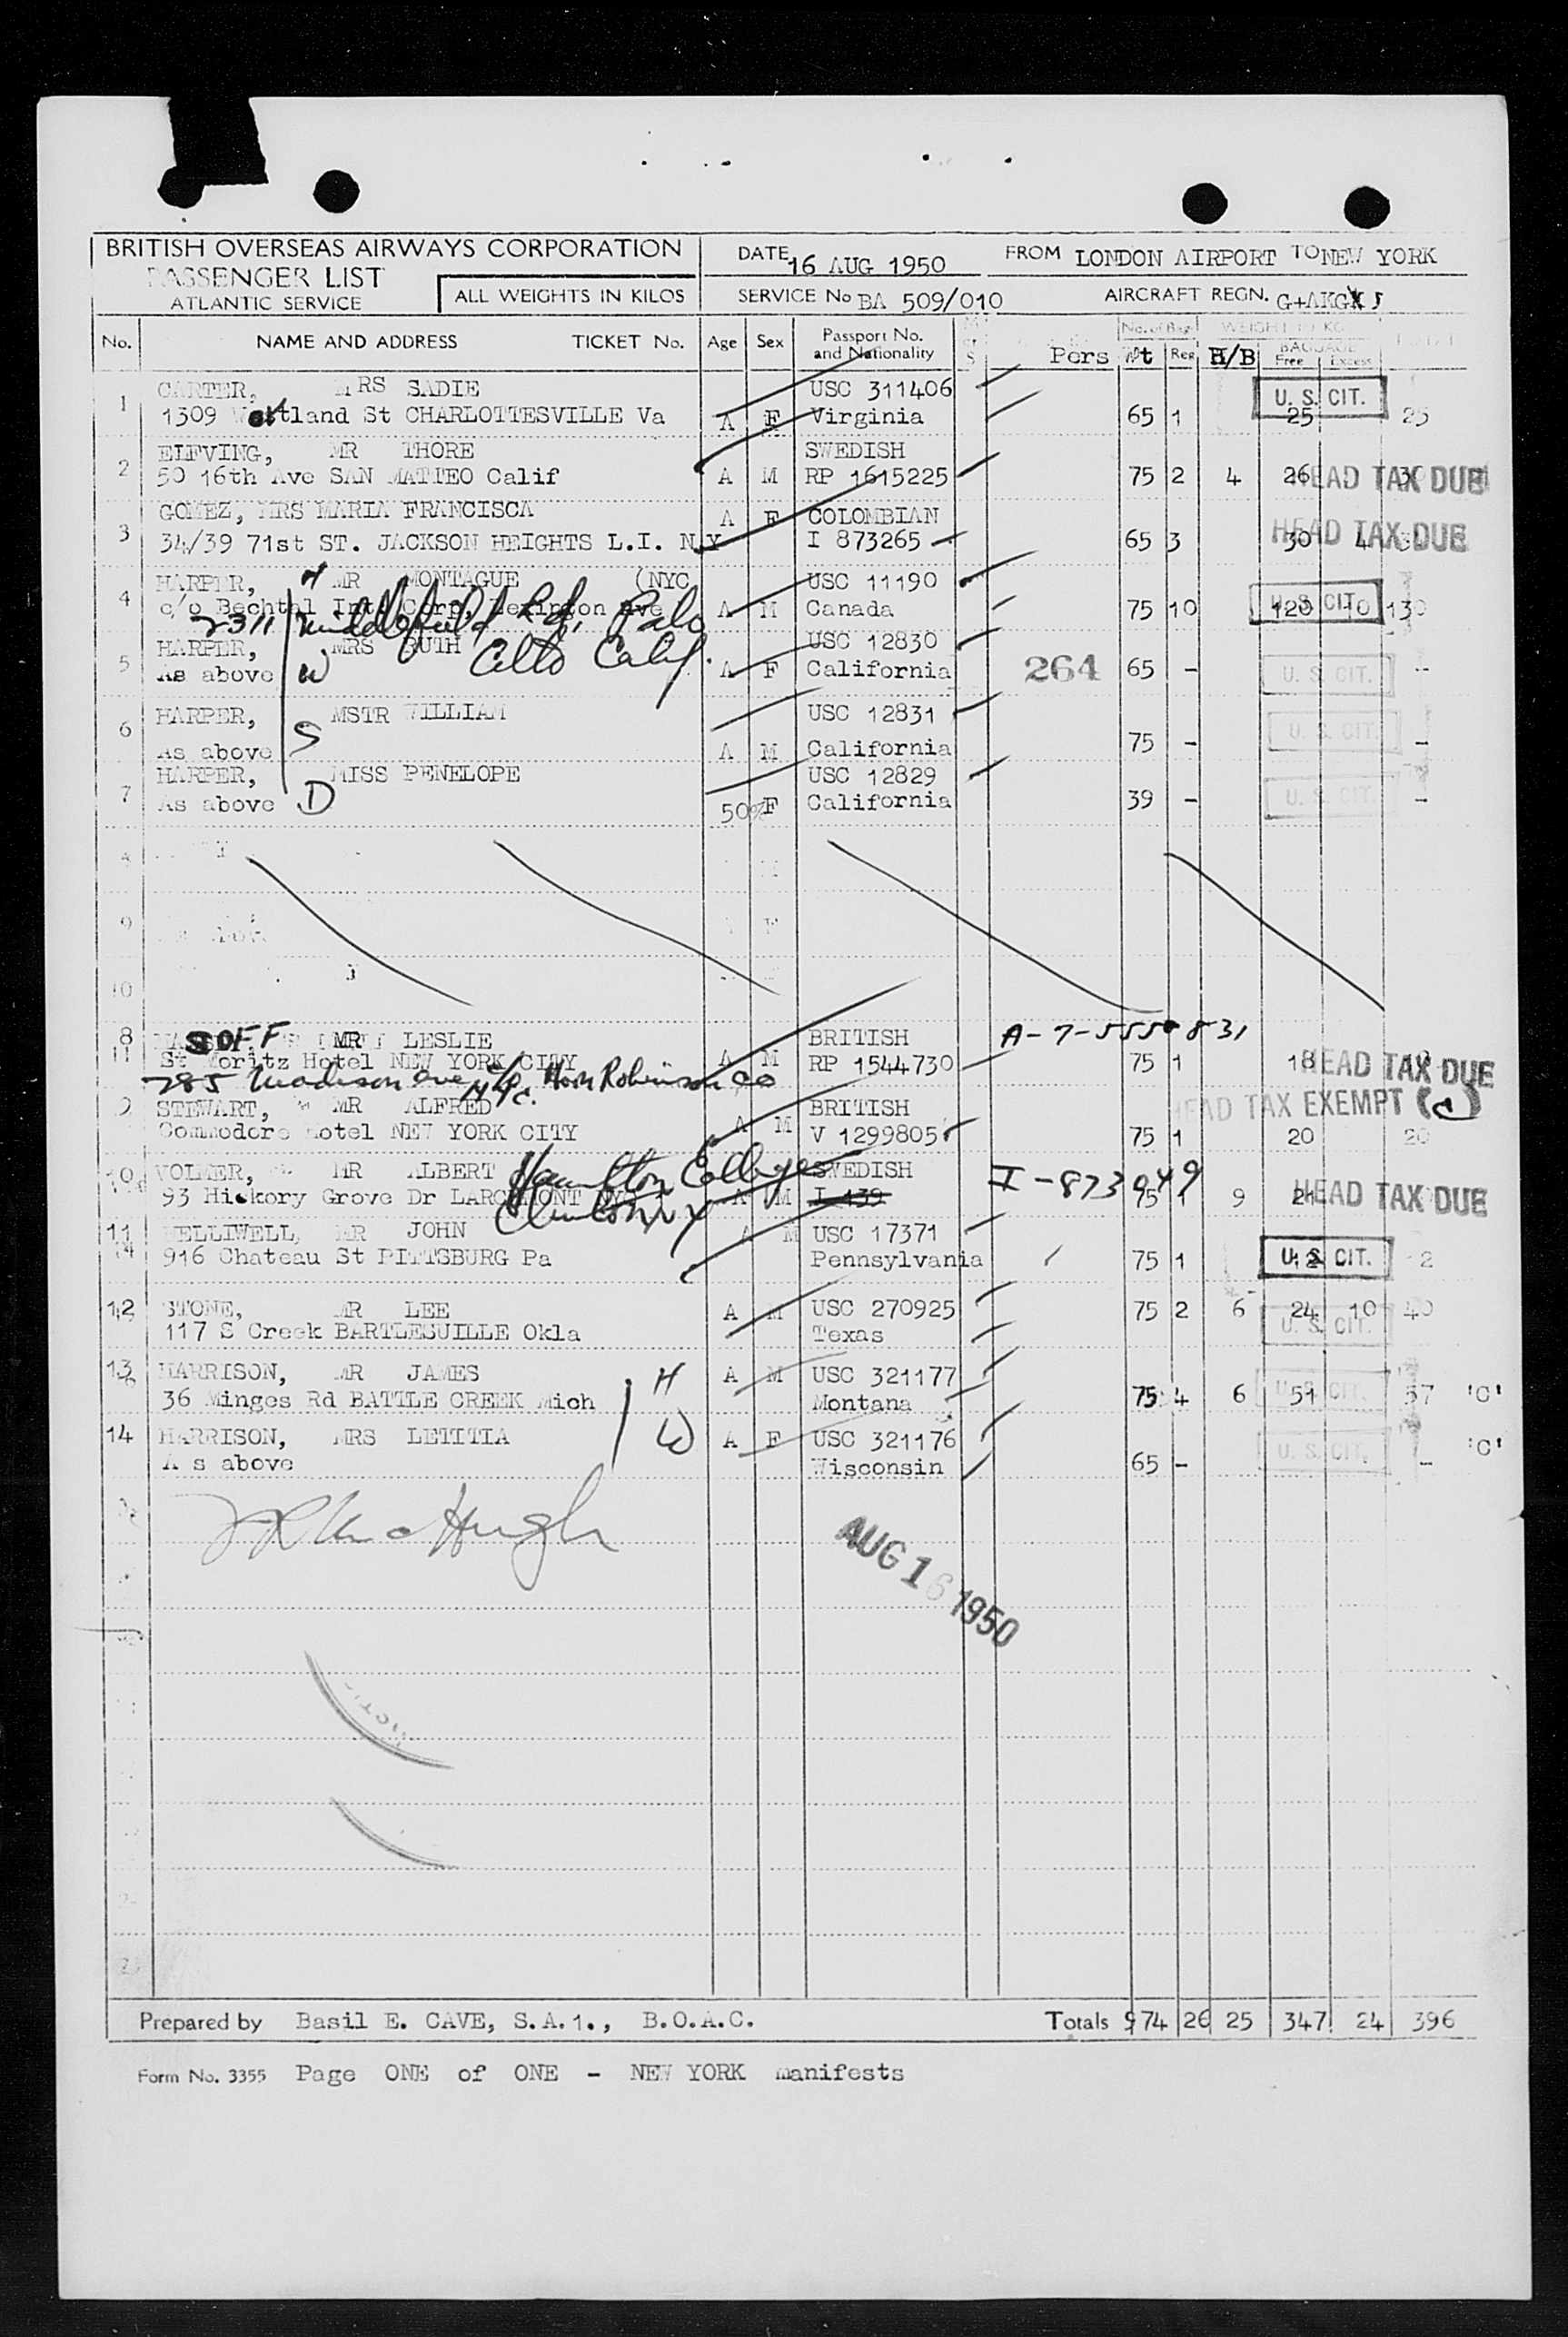 BRITISH OVERSEAS AIRWAYS CORPORATION
PASSENGER LIST
ATLANTIC SERVICE
ALL WEIGHTS IN KILOS
DATE 16 AUG 1950
FROM LONDON AIRPORT TO NEW YORK
SERVICE No BA 509/010
AIRCRAFT REGN. G+AKG J
No. NAME AND ADDRESS TICKET No. Age Sex Passport No. and Nationality Pers Wt Reg H/B BAGGAGE Free Excess
1 CARTER, MRS SADIE USC 311406 U. S. CIT.
1309 Wertland St CHARLOTTESVILLE Va A F Virginia 65 1 25 25
2 ELFVING, MR THORE SWEDISH
50 16th Ave SAN MATTEO Calif A M RP 1615225 75 2 4 26 HEAD TAX DUE
3 GOMEZ, MRS MARIA FRANCISCA A F COLOMBIAN
34/39 71st ST. JACKSON HEIGHTS L.I. N.Y I 873265 65 3 30 4 HEAD TAX DUE
4 HARPER, H MR MONTAGUE (NYC USC 11190
c/o Bechtal Int. Corp, Lexington Ave A M Canada 75 10 120 10 130 U. S. CIT.
2311 Middlefield Rd, Palo
Alto Calif.
5 HARPER, MRS RUTH USC 12830
As above W A F California 264 65 - U. S. CIT. -
6 HARPER, MSTR WILLIAM USC 12831
As above S A M California 75 - U. S. CIT. -
7 HARPER, MISS PENELOPE USC 12829
As above D 50% F California 39 - U. S. CIT. -
9
10
8 SOFF MR LESLIE BRITISH A-7-5550831
11 St Moritz Hotel NEW YORK CITY A M RP 1544730 75 1 18 HEAD TAX DUE
785 Madison Ave NYC. c/o Hon Robinson Co
9 STEWART, MR ALFRED BRITISH HEAD TAX EXEMPT (c)
Commodore Hotel NEW YORK CITY A M V 1299805 75 1 20 20
10 VOLMER, MR ALBERT Hamilton College SWEDISH I-873949
93 Hickory Grove Dr LARCHMONT NYC A M I 139 75 1 9 21 HEAD TAX DUE
Clinton NY
11 HELLIWELL, MR JOHN A M USC 17371
14 916 Chateau St PITTSBURG Pa Pennsylvania 75 1 12 U. S. CIT.
12 STONE, MR LEE A M USC 270925 75 2 6 24 10 40
117 S Creek BARTLESUILLE Okla Texas U. S. CIT.
13 HARRISON, MR JAMES H A M USC 321177
36 Minges Rd BATTLE CREEK Mich Montana 75 4 6 51 U. S. CIT. 57 'C'
14 HARRISON, MRS LETITIA W A F USC 321176 'C'
A s above Wisconsin 65 - U. S. CIT. -
AUG 16 1950
Prepared by Basil E. CAVE, S.A.1., B.O.A.C. Totals 974 26 25 347 24 396
Form No. 3355 Page ONE of ONE - NEW YORK manifests